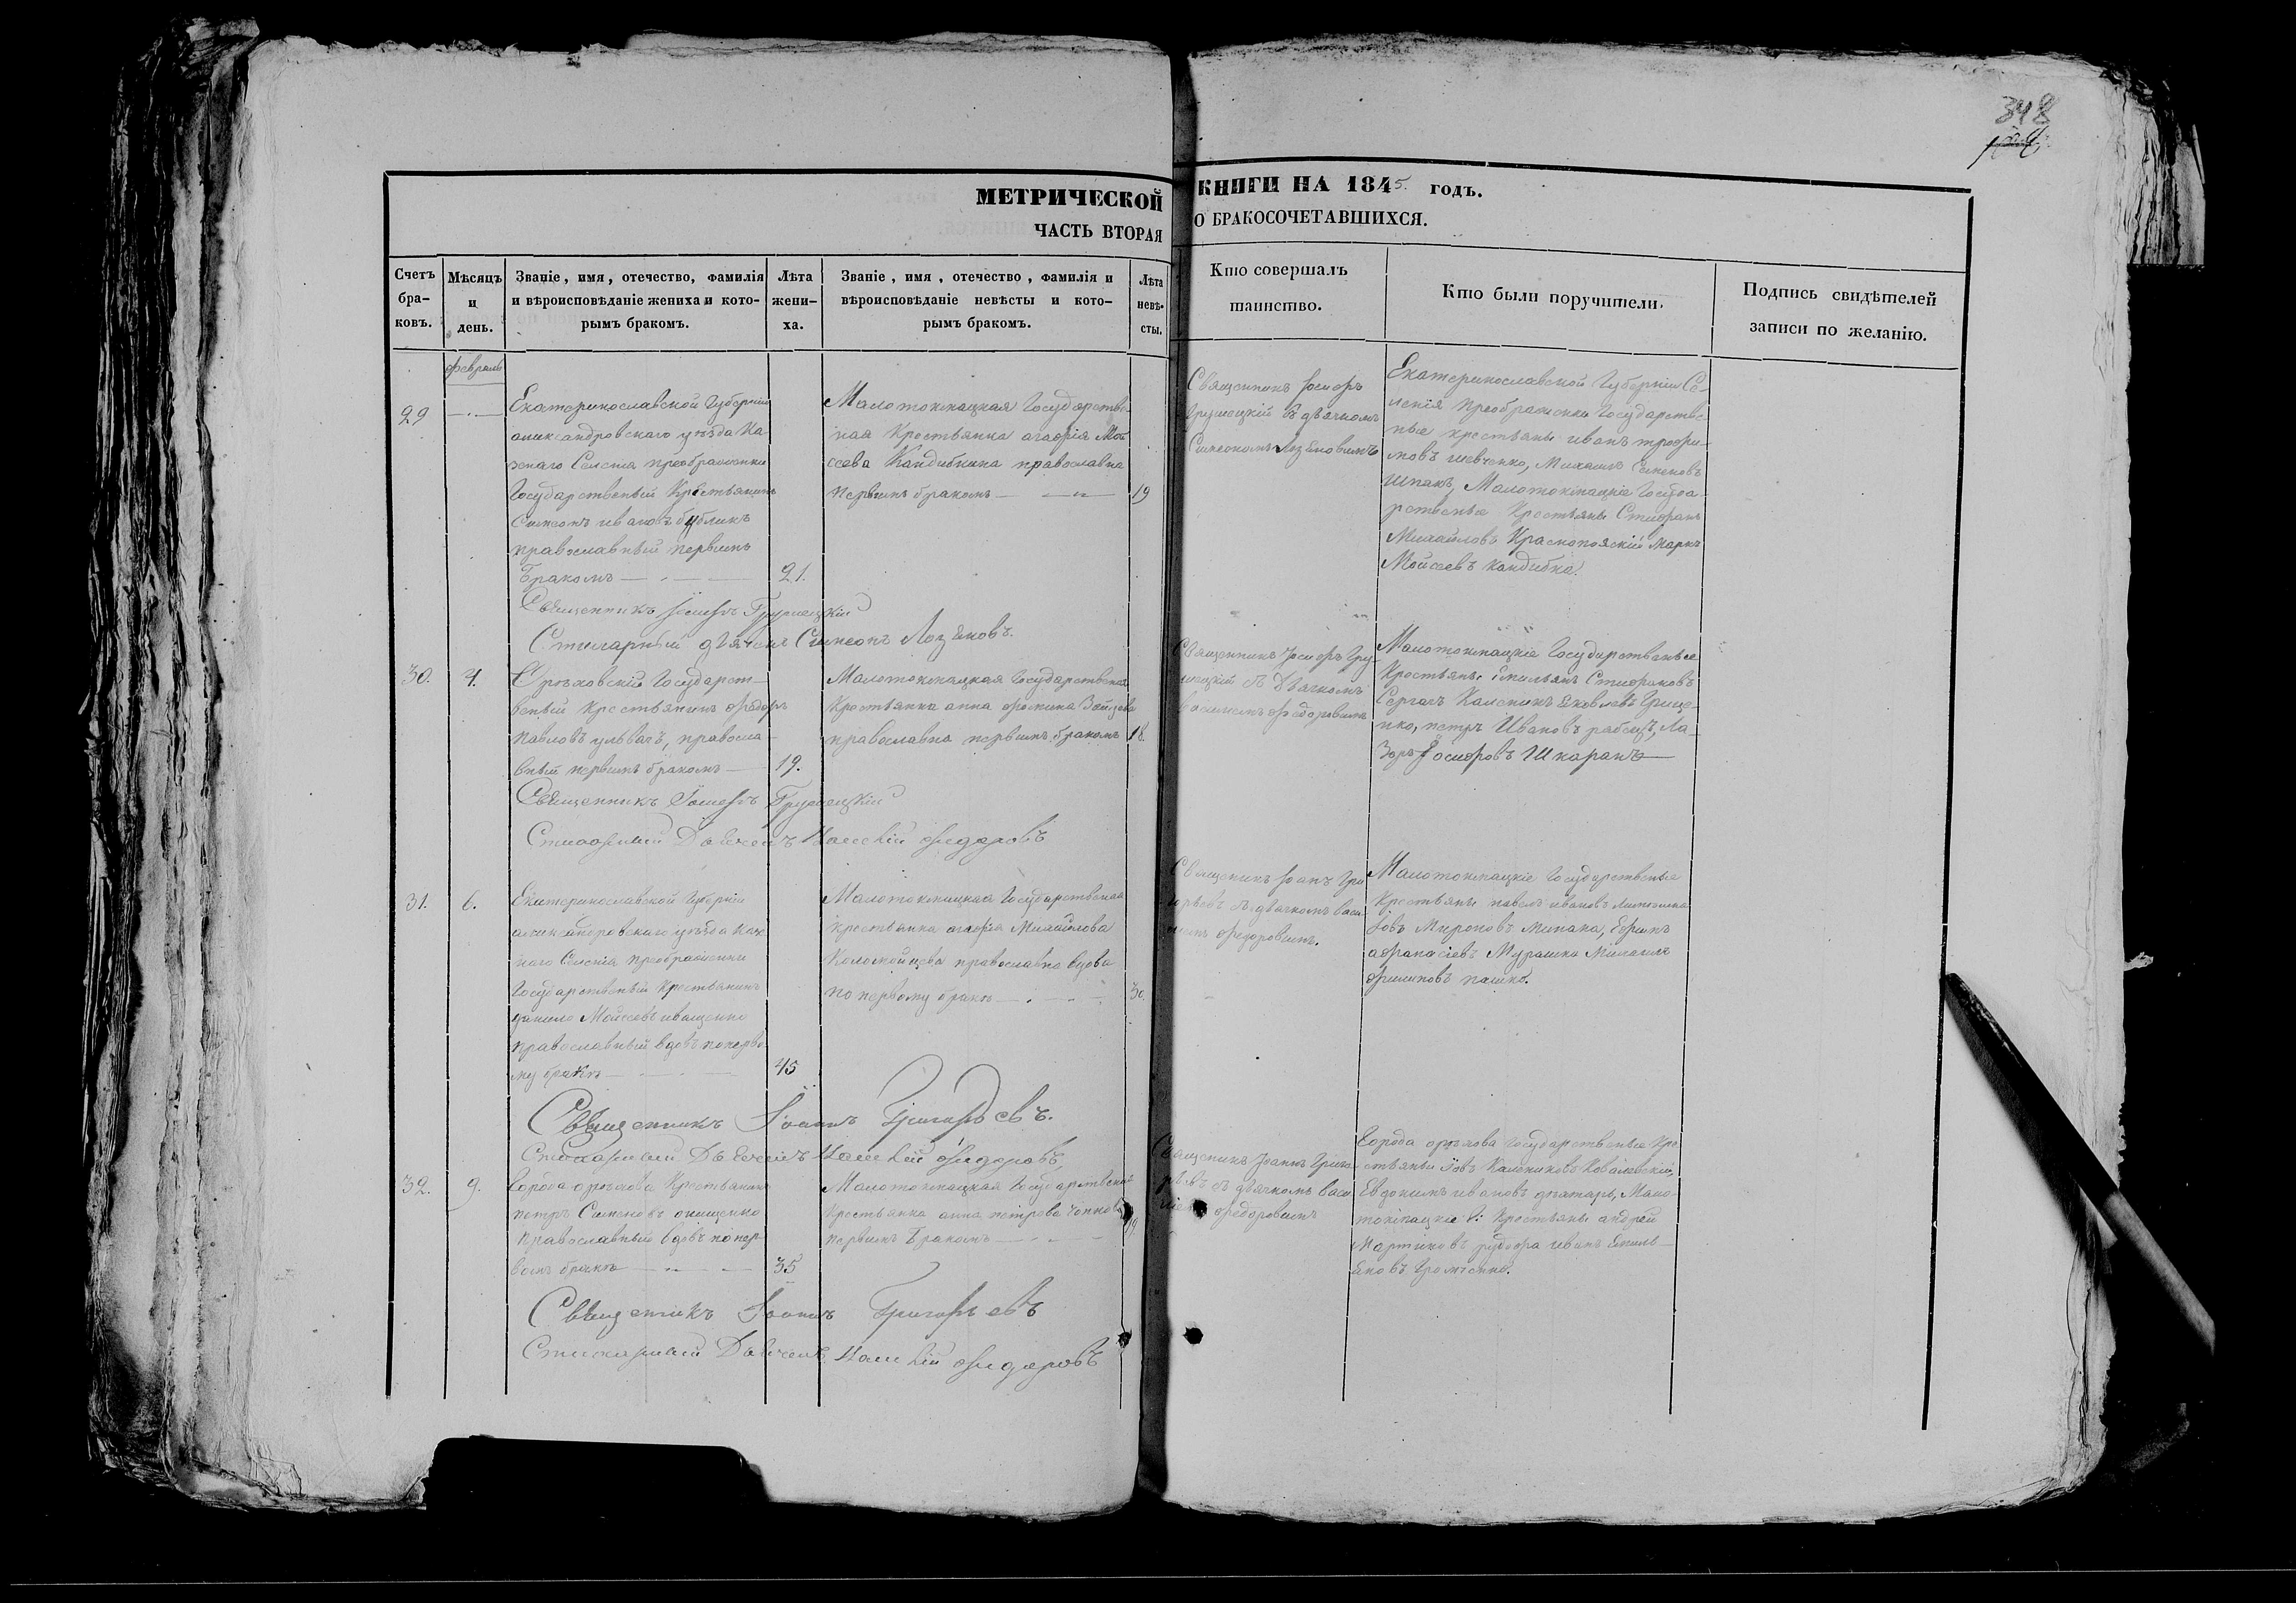 348
МЕТРИЧЕСКОЙ КНИГИ НА 1845. годъ.
ЧАСТЬ ВТОРАЯ О БРАКОСОЧЕТАВШИХСЯ.
Счетъ бра-ковъ.
Мѣсяцъ и день.
Званіе, имя, отечество, фамилія
и вѣроисповѣданіе жениха и кото-
рымъ бракомъ.
Лѣта жени-ха.
Званіе, имя, отечество, фамилія и
вѣроисповѣданіе невѣсты и кото-
рымъ бракомъ.
Лѣта невѣ-сты.
Кто совершалъ
таинство.
Кто были поручители.
Подпись свидѣтелей
записи по желанію.
февраль
29
Екатеринославской Губерніи
александровскаго уѣзда Ка-
зеннаго Селенія преображенки
Государственый Крестьянинъ
Симеонъ ивановъ бубликъ
православный первымъ
бракомъ
21.
Малотокмацкая Государстве-
ная Крестьянка агафія Мой
сеева Кандибкина православна
первымъ бракомъ
19
Священикъ Іосифъ
съ дьячкомъ
Симеономъ
Екатеринославской Губерніи Се-
ленія Преображенки Государстве-
ные крестьяне иванъ трофи-
мовъ шевченко, Михаилъ Семеновъ
шпакъ, Малотокмацкіе Госуда-
рственые Крестьяне Стефанъ
Михайловъ Краснопоясkій Маркъ
Мойсеевъ кандибка.
Священникъ Іосифъ
Стихарный дьячокъ Симеонъ
30.
4.
Орѣховскій Государст-
веный Крестьянинъ федоръ
Павловъ православ-
вный первымъ бракомъ
19.
Малотокмацкая Государственая
Крестьянка анна фомина
православна первымъ бракомъ
18.
Священникъ Іосифъ Гру-
съ Дьячкомъ
василіемъ федоровымъ
Малотокмацкіе Государственые
Крестьяне Емельянъ Стефановъ
Сергачъ Каленикъ Яковлевъ Грице-
нко, петръ Ивановъ рабецъ, Ла-
заръ Іосифовъ Шкаранъ
Священникъ Іосифъ
Стихарный Дьячекъ Василій федоровъ
31.
6.
Екатеринославской Губерніи
александровскаго уѣзда Казе-
наго Селенія преображенки
Государственый Крестьянинъ
данило Мойсеевъ иващенко
православный вдовъ по перво-
му бракѣ
45
Малотокмацкая Государственая
крестьянка агафія Михайлова
Коломойцева православна вдова
по первому бракѣ
30.
Священикъ Іоанъ Гри
горьевъ съ дьячкомъ васи-
ліемъ федоровымъ.
Малотокмацкіе Государственые
Крестьяне павелъ ивановъ
Мироновъ Минака, Ефимъ
афанасіевъ Мурашко Михаилъ
филиповъ пашко.
Священникъ Іоаннъ Григорьевъ.
Стихарный Дьячекъ Василій федоровъ
32.
9.
Города орѣхова Крестьянинъ
петръ Семеновъ онищенко
православный вдовъ по пер-
вомъ бракѣ
35
Малотокмацкая Государственая
Крестьянка анна петрова
первымъ бракомъ
19.
Священикъ Іоанъ Григо-
рьевъ съ дьячкомъ васи-
ліемъ федоровымъ
Города орѣхова Государственые Кре-
стьяне Іовъ Калениковъ Ковалевскій,
Евдокимъ ивановъ дегтярь, Мало-
токмацкіе Крестьяне андрей
Мартиновъ иванъ Емель-
яновъ Громченко.
Священникъ Іоаннъ Григорьевъ
Стихарный Дьячекъ Василій федоровъ